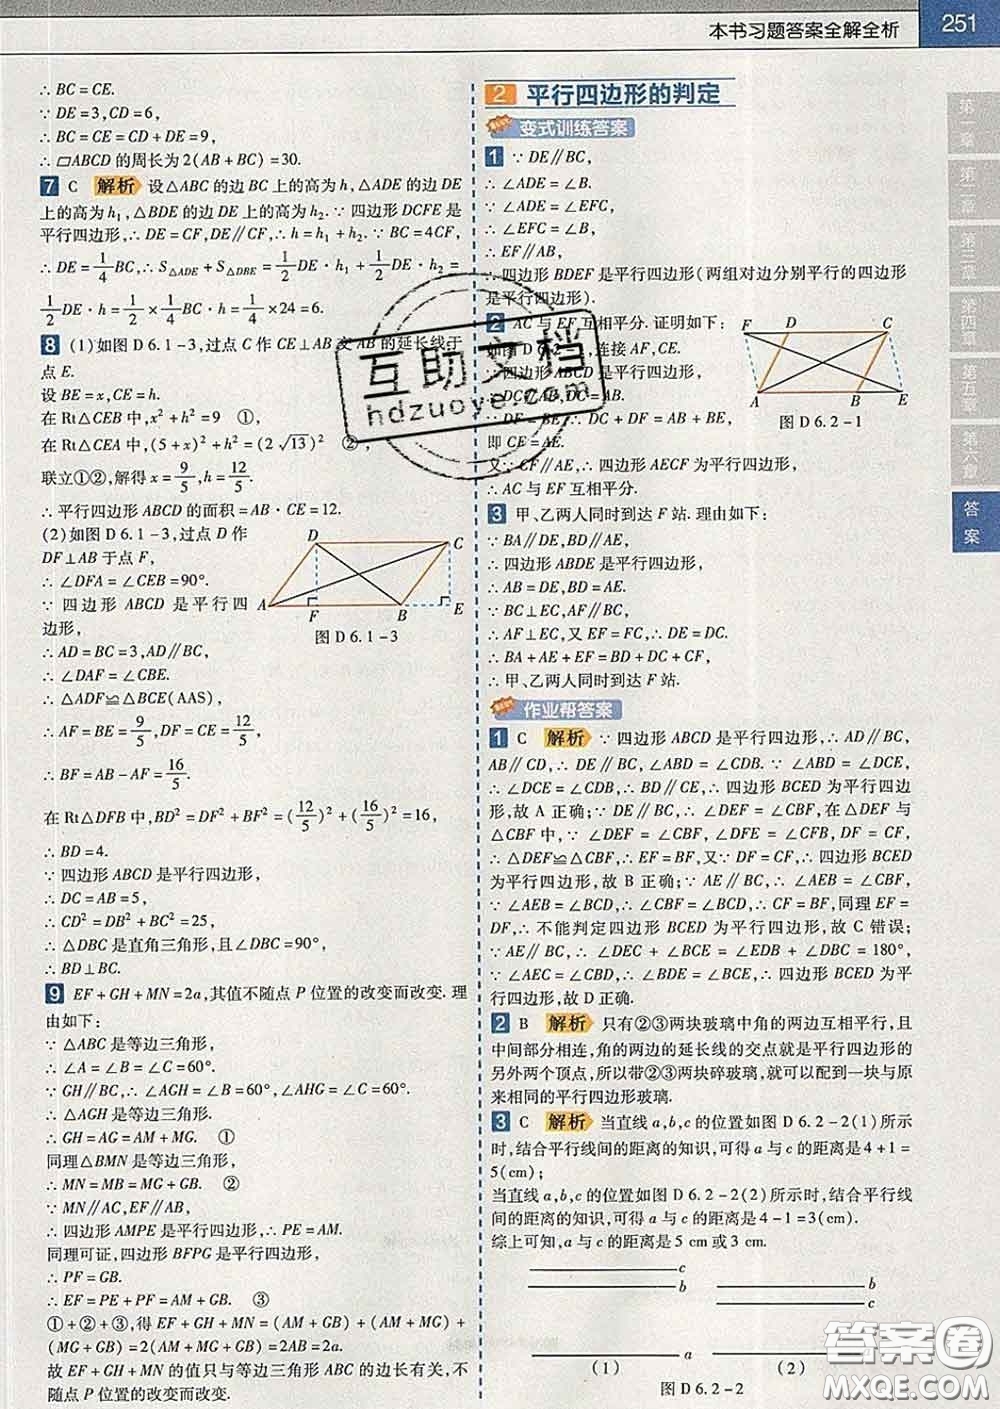 本书习题答案全解全析 251
∴ BC = CE.
∵ DE = 3, CD = 6,
∴ BC = CE = CD + DE = 9,
∴ ▱ABCD 的周长为 2(AB + BC) = 30.
7 C 解析 设△ABC 的边 BC 上的高为 h, △ADE 的边 DE
上的高为 h₁, △BDE 的边 DE 上的高为 h₂. ∵ 四边形 DCFE 是
平行四边形, ∴ DE = CF, DE∥CF, ∴ h = h₁ + h₂. ∵ BC = 4CF,
∴ DE = 1/4 BC, ∴ S△ADE + S△DBE = 1/2 DE · h₁ + 1/2 DE · h₂ =
1/2 DE · h = 1/2 × 1/4 BC · h = 1/4 × 24 = 6.
8 (1)如图 D 6.1-3, 过点 C 作 CE⊥AB 交 AB 的延长线于
点 E.
设 BE = x, CE = h.
在 Rt△CEB 中, x² + h² = 9 ①,
在 Rt△CEA 中, (5 + x)² + h² = (2√13)² ②,
联立①②, 解得 x = 9/5, h = 12/5.
∴ 平行四边形 ABCD 的面积 = AB · CE = 12.
(2)如图 D 6.1-3, 过点 D 作
DF⊥AB 于点 F,
∴ ∠DFA = ∠CEB = 90°.
∵ 四边形 ABCD 是平行四
边形,
∴ AD = BC = 3, AD∥BC,
∴ ∠DAF = ∠CBE.
∴ △ADF≌△BCE(AAS).
∴ AF = BE = 9/5, DF = CE = 12/5,
∴ BF = AB - AF = 16/5.
在 Rt△DFB 中, BD² = DF² + BF² = (12/5)² + (16/5)² = 16,
∴ BD = 4.
∵ 四边形 ABCD 是平行四边形,
∴ DC = AB = 5,
∴ CD² = DB² + BC² = 25,
∴ △DBC 是直角三角形, 且∠DBC = 90°,
∴ BD⊥BC.
D C A F B E
图 D 6.1-3
9 EF + GH + MN = 2a, 其值不随点 P 位置的改变而改变. 理
由如下:
∵ △ABC 是等边三角形,
∴ ∠A = ∠B = ∠C = 60°.
∵ GH∥BC, ∴ ∠AGH = ∠B = 60°, ∠AHG = ∠C = 60°.
∴ △AGH 是等边三角形.
∴ GH = AG = AM + MG. ①
同理△BMN 是等边三角形,
∴ MN = MB = MG + GB. ②
∵ MN∥AC, EF∥AB,
∴ 四边形 AMPE 是平行四边形, ∴ PE = AM.
同理可证, 四边形 BFPG 是平行四边形,
∴ PF = GB.
∴ EF = PE + PF = AM + GB. ③
① + ② + ③, 得 EF + GH + MN = (AM + GB) + (AM + MG) +
(MG + GB) = 2(AM + MG + GB) = 2AB = 2a.
故 EF + GH + MN 的值只与等边三角形 ABC 的边长有关, 不
随点 P 位置的改变而改变.
2 平行四边形的判定
变式训练答案
1 ∵ DE∥BC,
∴ ∠ADE = ∠B.
∵ ∠ADE = ∠EFC,
∴ ∠EFC = ∠B.
∴ EF∥AB,
∴ 四边形 BDEF 是平行四边形(两组对边分别平行的四边形
是平行四边形).
2 AC 与 EF 互相平分. 证明如下:
如图 D 6.2-1, 连接 AF, CE.
∵ 四边形 ABCD 是平行四边形,
∴ DC∥AB, DC = AB.
∵ DF = BE, ∴ DC + DF = AB + BE,
即 CF = AE.
又∵ CF∥AE, ∴ 四边形 AECF 是平行四边形.
∴ AC 与 EF 互相平分.
F D C A B E
图 D 6.2-1
3 甲、乙两人同时到达 F 站. 理由如下:
∵ BA∥DE, BD∥AE,
∴ 四边形 ABDE 是平行四边形,
∴ AB = DE, BD = AE.
∵ BC⊥EC, AF∥BC,
∴ AF⊥EC, 又 EF = FC, ∴ DE = DC.
∴ BA + AE + EF = BD + DC + CF,
∴ 甲、乙两人同时到达 F 站.
作业帮答案
1 C 解析 ∵ 四边形 ABCD 是平行四边形, ∴ AD∥BC,
AB∥CD, ∴ DE∥BC, ∠ABD = ∠CDB. ∵ ∠ABD = ∠DCE,
∴ ∠DCE = ∠CDB, ∴ BD∥CE, ∴ 四边形 BCED 是平行四边
形, 故 A 正确; ∵ DE∥BC, ∴ ∠DEF = ∠CBF, 在△DEF 与
△CBF 中, ∵ ∠DEF = ∠CBF, ∠DFE = ∠CFB, DF = CF,
∴ △DEF≌△CBF, ∴ EF = BF, 又∵ DF = CF, ∴ 四边形 BCED
为平行四边形, 故 B 正确; ∵ AE∥BC, ∴ ∠AEB = ∠CBF,
∵ ∠AEB = ∠BCD, ∴ ∠CBF = ∠BCD, ∴ CF = BF, 同理 EF =
DF, ∴ 不能判定四边形 BCED 为平行四边形, 故 C 错误;
∵ AE∥BC, ∴ ∠DEC + ∠BCE = ∠EDB + ∠DBC = 180°,
∵ ∠AEC = ∠CBD, ∴ ∠BDE = ∠BCE, ∴ 四边形 BCED 为平
行四边形, 故 D 正确.
2 B 解析 只有②③两块玻璃中角的两边互相平行, 且
中间部分相连, 角的两边的延长线的交点就是平行四边形的
另外两个顶点, 所以带②③两块碎玻璃, 就可以配到一块与原
来相同的平行四边形玻璃.
3 C 解析 当直线 a, b, c 的位置如图 D 6.2-2(1)所示
时, 结合平行线间的距离的知识, 可得 a 与 c 的距离是 4 + 1 =
5(cm);
当直线 a, b, c 的位置如图 D 6.2-2(2)所示时, 结合平行线
间的距离的知识, 可得 a 与 c 的距离是 4 - 1 = 3(cm).
综上可知, a 与 c 的距离是 5 cm 或 3 cm.
c b a (1)
b c (2)
图 D 6.2-2
第一章
第二章
第三章
第四章
第五章
第六章
答案
互助文档
hdzuoye.com
答案圈
MXQE.COM